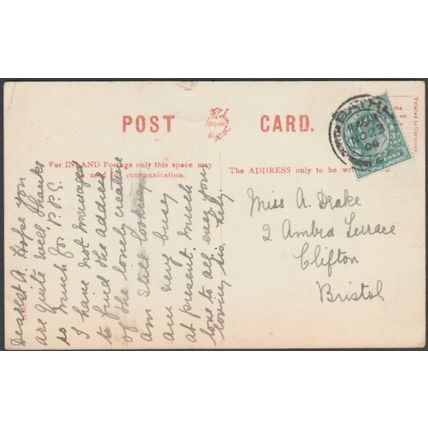 POST CARD.
For INLAND Postage only this space may
be used for communication.
The ADDRESS only to be
Printed in Germany
BATH
OC 23
06
Miss A. Drake
2 Ambra Terrace
Clifton
Bristol
Dearest A. Hope you
are quite well. Thanks
so much for P.P.C.
I have not managed
to find the address
of the lonely creature
am still looking
am very busy
at present. Much
love to all every your
loving sis.